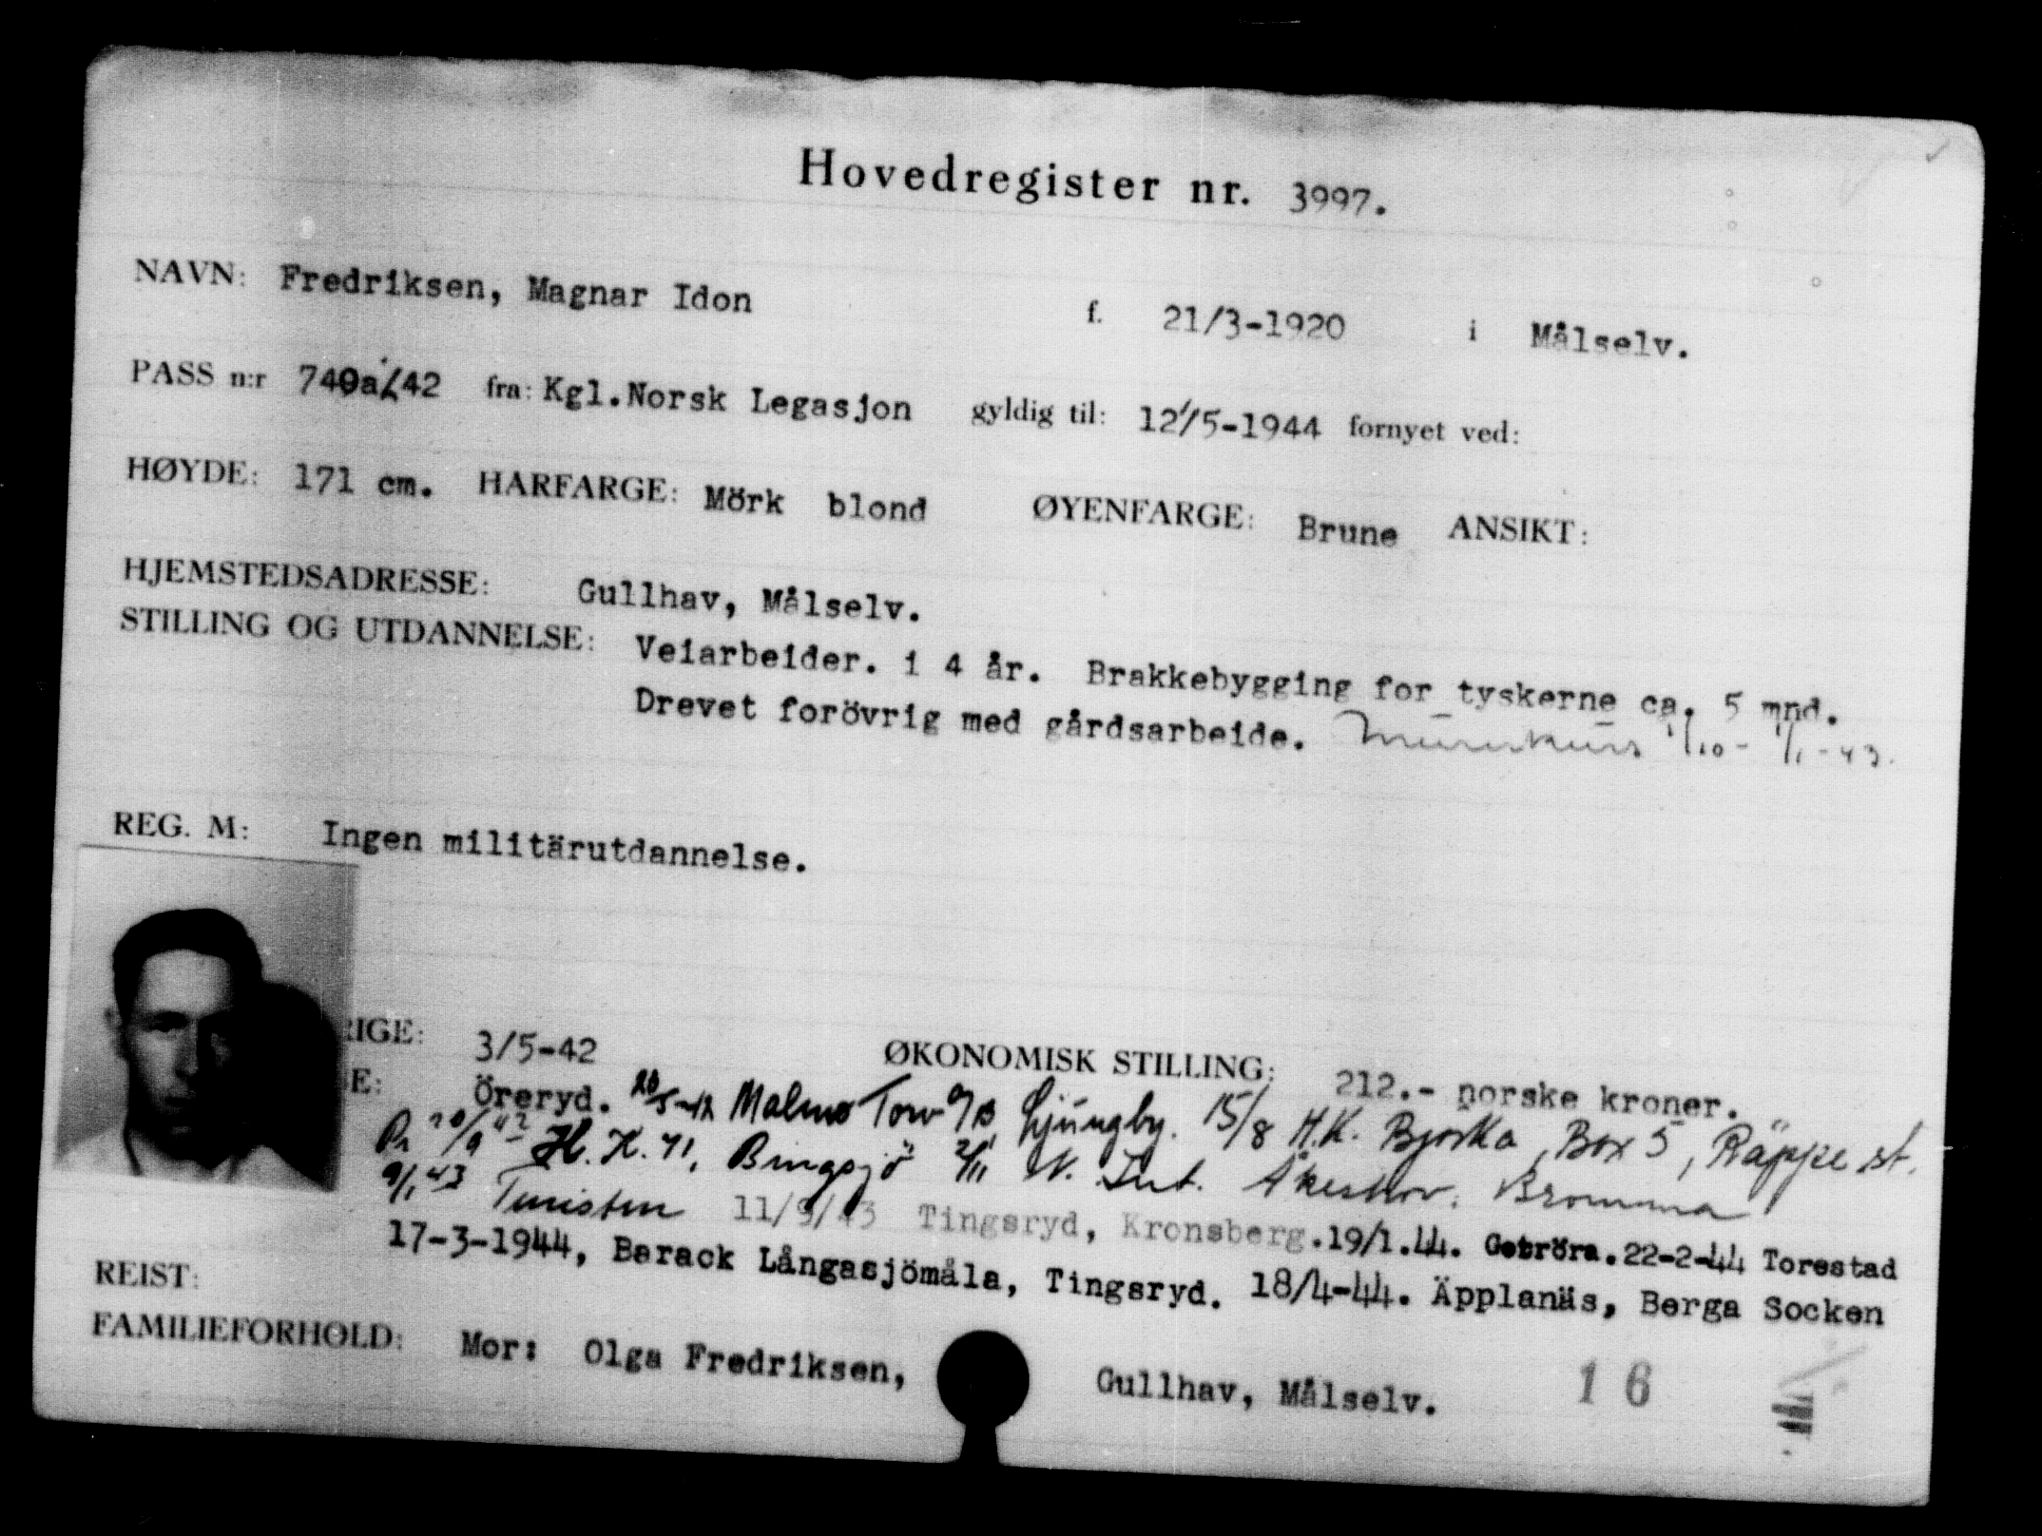 Hovedregister nr. 3997.
NAVN: Fredriksen, Magnar Idon f. 21/3-1920 i Målselv.
PASS n:r 740a/42 fra: Kgl.Norsk Legasjon gyldig til: 12/5-1944 fornyet ved:
HØYDE: 171 cm. HARFARGE: Mörk blond ØYENFARGE: Brune ANSIKT:
HJEMSTEDSADRESSE: Gullhav, Målselv.
STILLING OG UTDANNELSE: Veiarbeider. i 4 år. Brakkebygging for tyskerne ca. 5 mnd.
Drevet forövrig med gårdsarbeide. Murerkurs 1/10 - 1/1-43.
REG. M: Ingen militärutdannelse.
RIGE: 3/5-42 ØKONOMISK STILLING: 212.- norske kroner.
E: Öreryd. 20/5-42 Malmö Ljungby. 15/8 H.K. Bjorka, Box 5, Räppe st.
20/9 42 H.K. 41, Bingsjö 2/11 N. Int. Åkeshov, Bromma
9/1 43 Turisten 11/9/43 Tingsryd, Kronsberg. 19/1.44. Getröra. 22-2-44 Torestad
17-3-1944, Barack Långasjömåla, Tingsryd. 18/4-44. Äpplanäs, Berga Socken
REIST:
FAMILIEFORHOLD: Mor: Olga Fredriksen, Gullhav, Målselv. 16